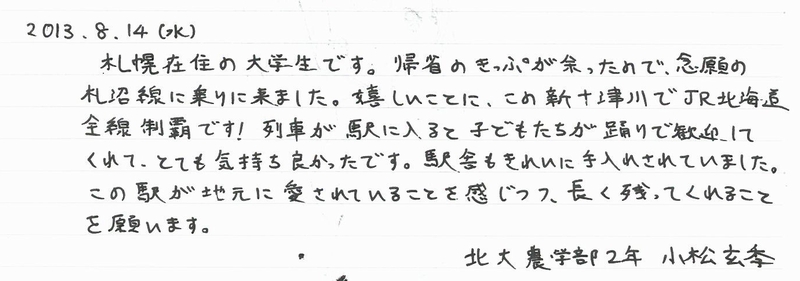 2013.8.14(水)
札幌在住の大学生です。帰省のきっぷが余ったので、念願の
札沼線に乗りに来ました。嬉しいことに、この新十津川でJR北海道
全線制覇です!列車が駅に入ると子どもたちが踊りで歓迎して
くれて、とても気持ち良かったです。駅舎もきれいに手入れされていました。
この駅が地元に愛されていることを感じつつ、長く残ってくれること
を願います。
北大農学部2年 小松玄季